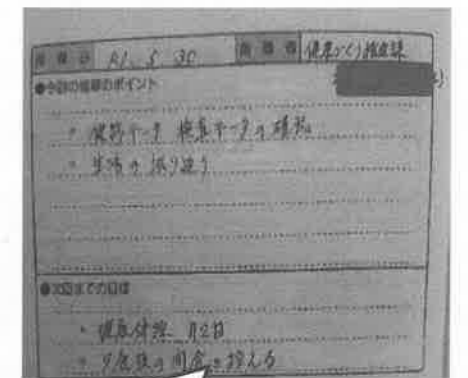 指導日 R1. 5. 30 指導者 健康づくり推進課
●今回の指導のポイント
・健診データ 検査データの確認
・生活の振り返り
●次回までの目標
・健康体操 月2回
・夕食後の間食を控える